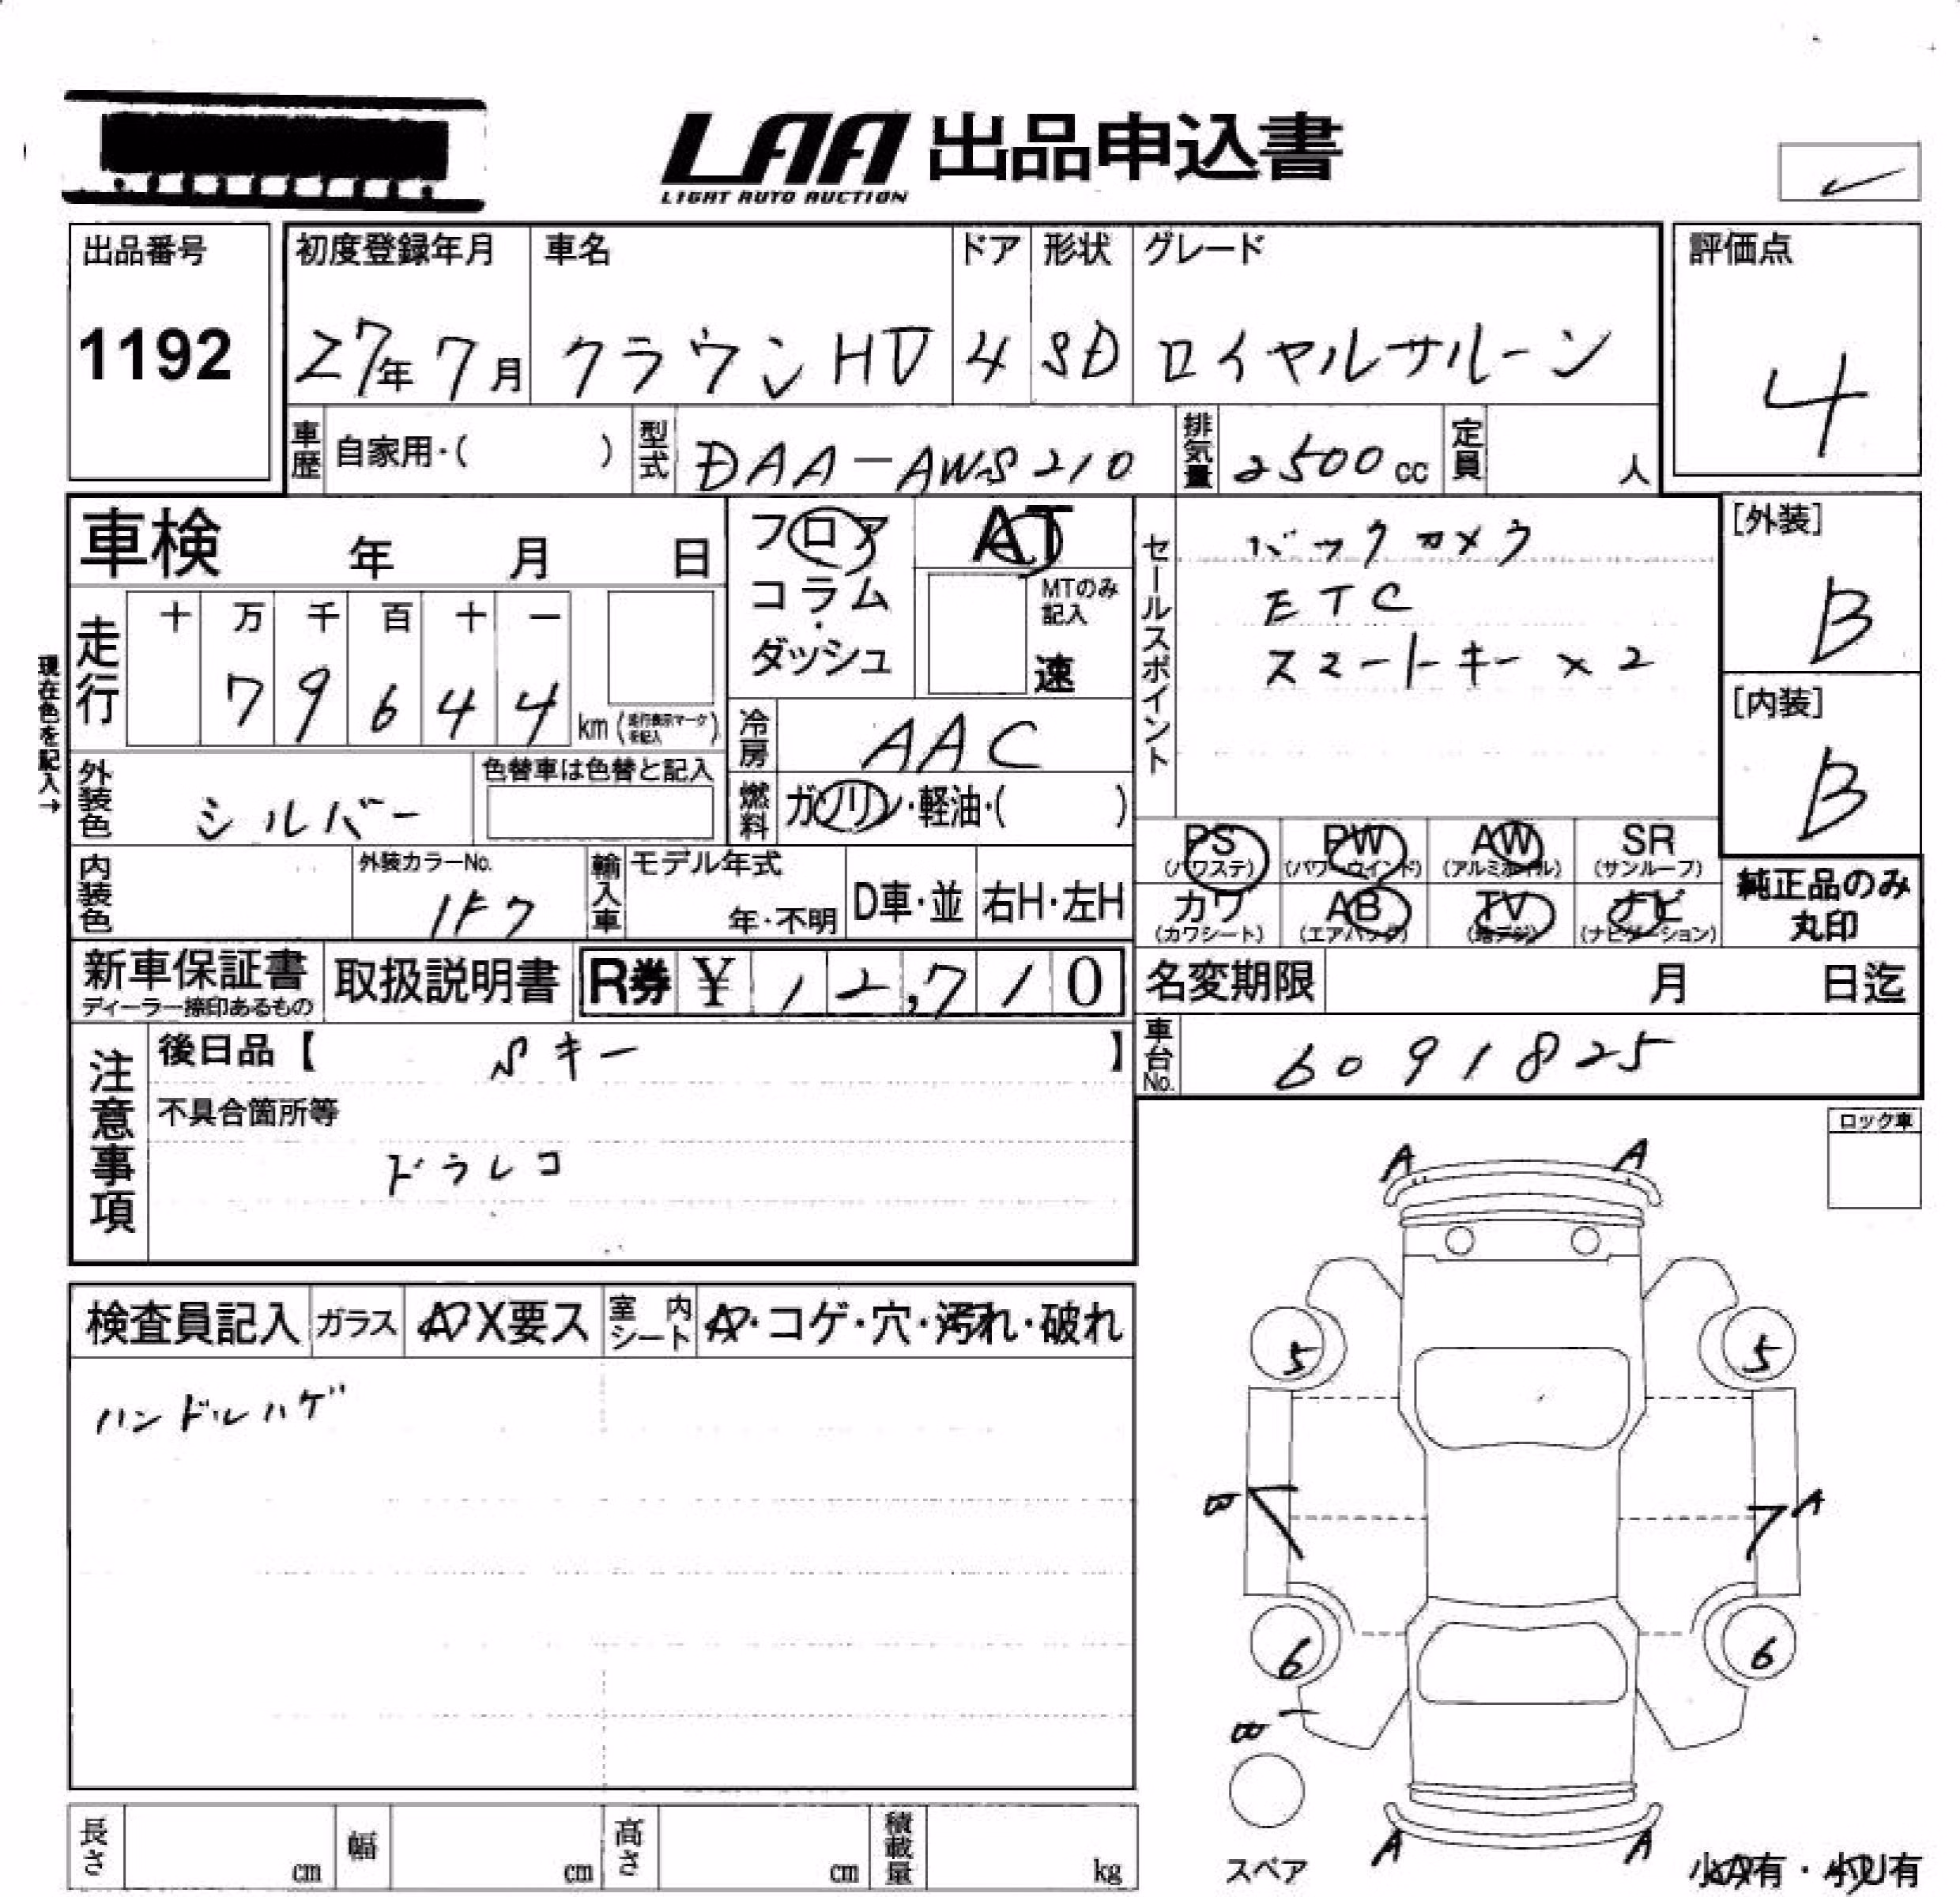 LAA 出品申込書
LIGHT AUTO AUCTION
出品番号
1192
初度登録年月
27年 7月
車名
クラウンHV
ドア
4
形状
SD
グレード
ロイヤルサルーン
評価点
4
車歴 自家用・( )
型式 DAA-AWS210
排気量 2500cc
定員 人
車検 年 月 日
フロア
コラム・
ダッシュ
AT
MTのみ
記入
速
セールスポイント
バックカメラ
ETC
スマートキー×2
[外装]
B
[内装]
B
現在色を記入→
走行 十 万 千 百 十 一
7 9 6 4 4 km
冷房 AAC
外装色 シルバー
色替車は色替と記入
燃料 ガソリン・軽油・( )
内装色
外装カラーNo.
1F7
輸入車 モデル年式
年・不明
D車・並
右H・左H
PS (パワステ)
PW (パワーウインド)
AW (アルミホイル)
SR (サンルーフ)
カワ (カワシート)
AB (エアバッグ)
TV (地デジ)
ナビ (ナビゲーション)
純正品のみ
丸印
新車保証書
ディーラー捺印あるもの
取扱説明書
R券 ¥ 12,710
名変期限 月 日迄
車台No. 6091825
注意事項
後日品【 Sキー 】
不具合箇所等
ドラレコ
ロック車
検査員記入
ガラス A X要ス
室内シート A・コゲ・穴・汚れ・破れ
ハンドルハゲ
A A
5 5
A
6 6
A A
スペア
小A有・小U有
長さ cm
幅 cm
高さ cm
積載量 kg